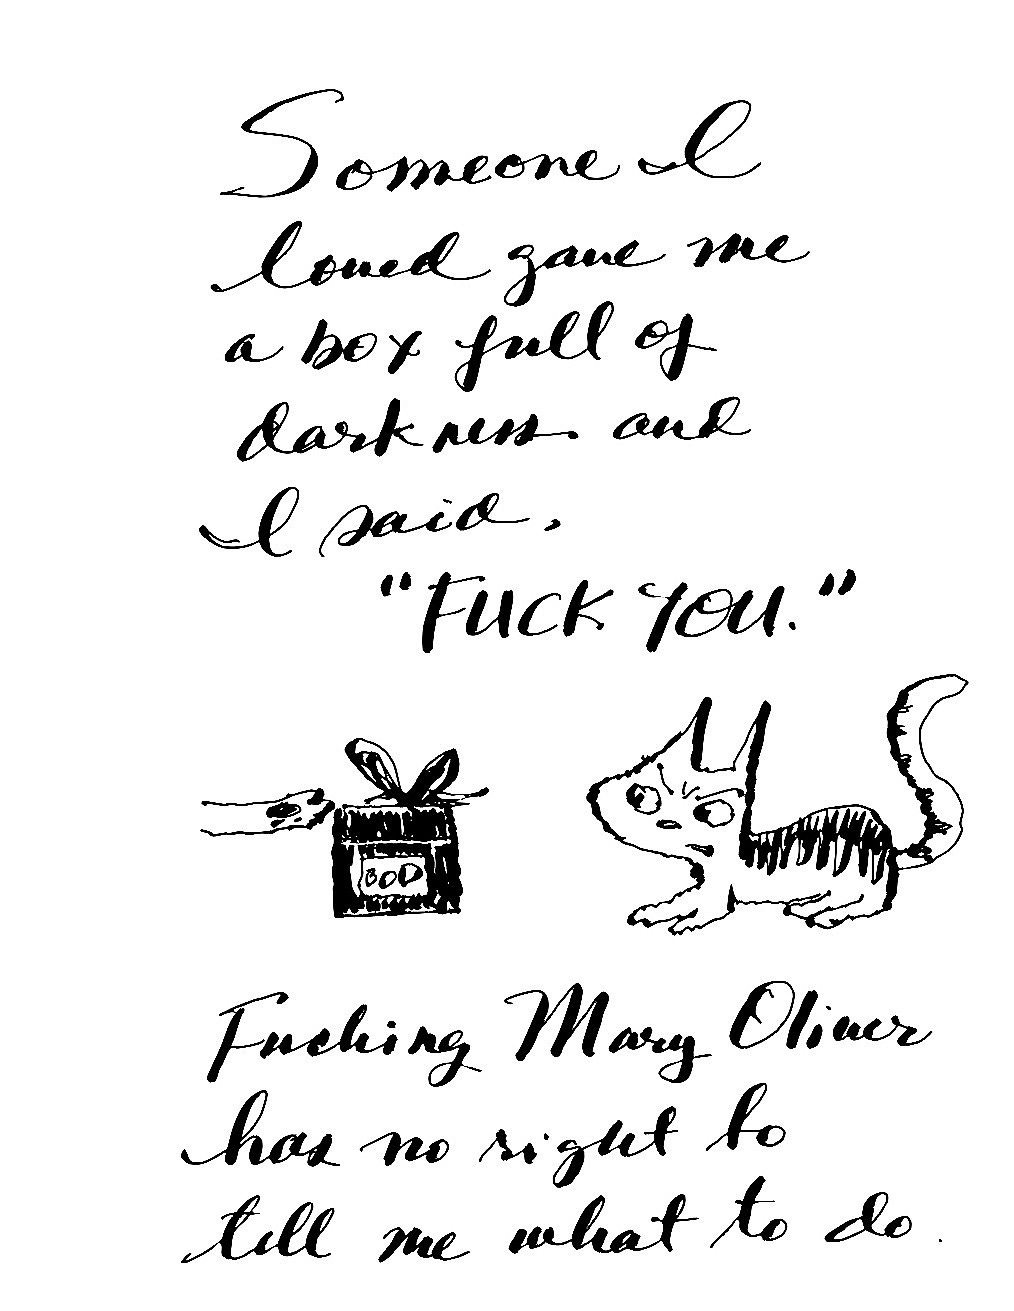 Someone I
loved gave me
a box full of
darkness and
I said,
"FUCK YOU."
BOD
Fucking Mary Oliver
has no right to
tell me what to do.